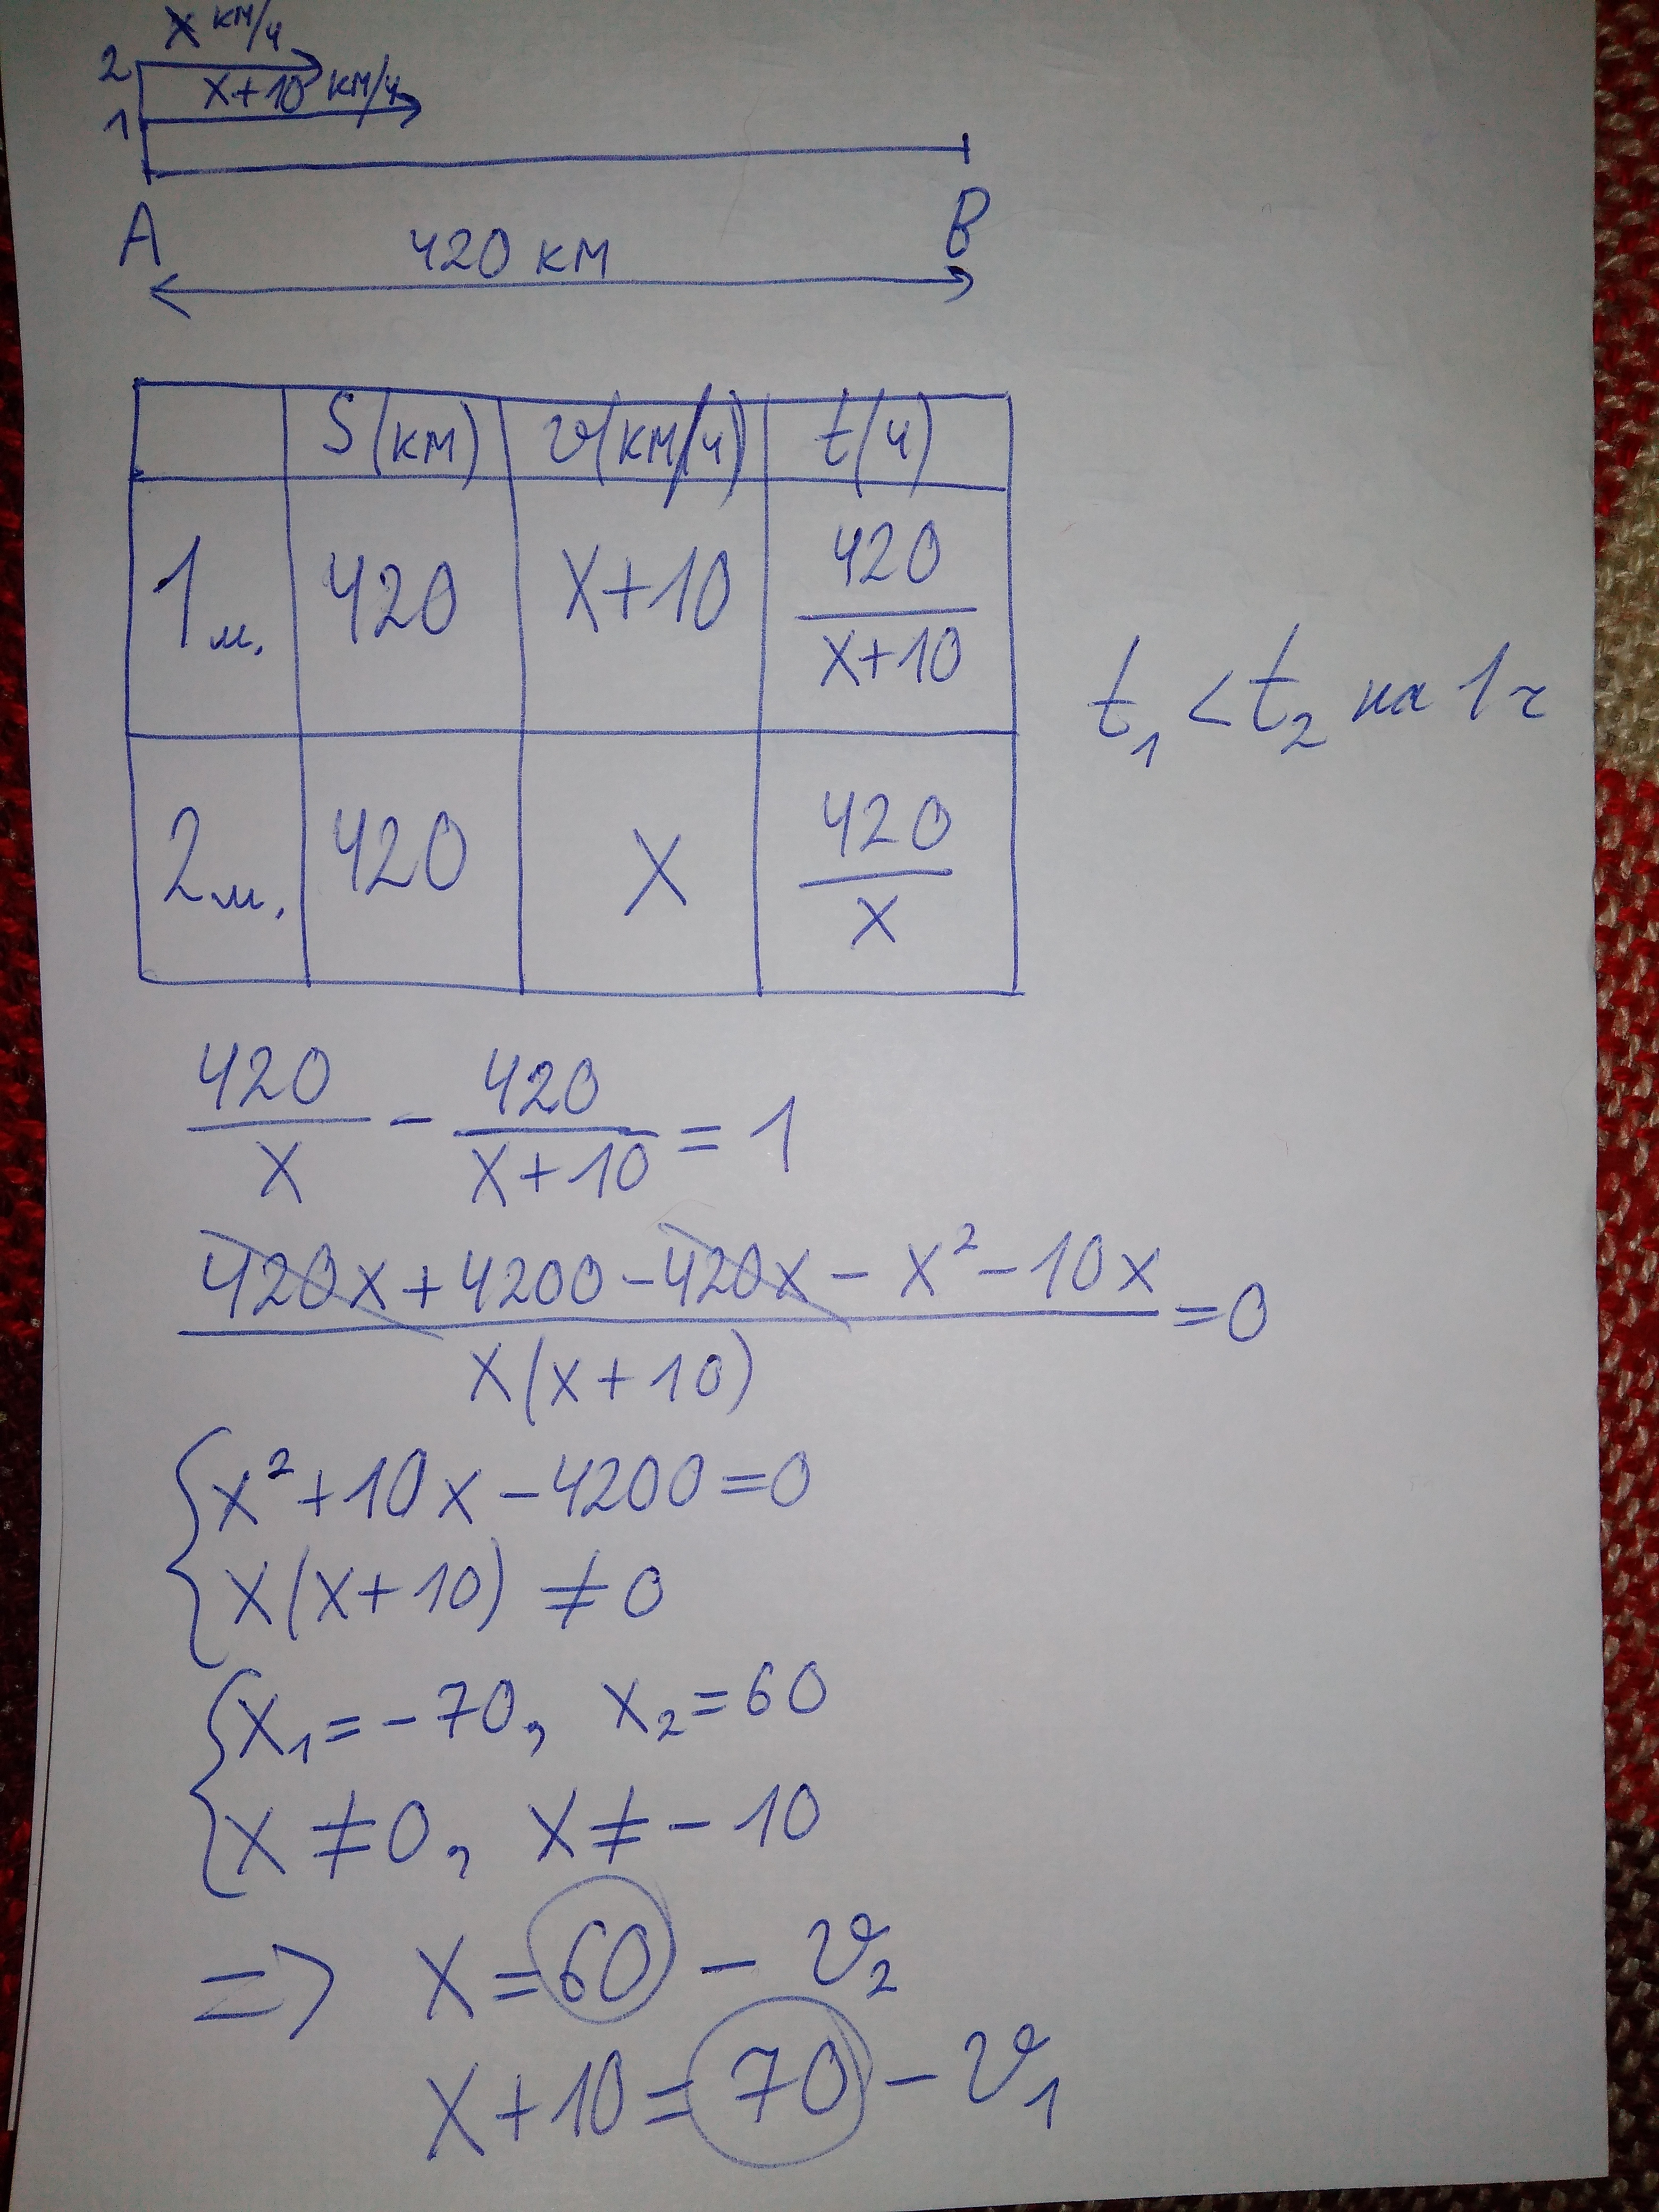 x км/ч
2
x+10 км/ч
1
A B
420 км
S(км) v(км/ч) t(ч)
1м. 420 x+10 420/(x+10)
t₁ < t₂ на 1ч
2м. 420 x 420/x
420/x - 420/(x+10) = 1
(420x + 4200 - 420x - x² - 10x)/(x(x+10)) = 0
{x² + 10x - 4200 = 0
x(x+10) ≠ 0
{x₁ = -70, x₂ = 60
x ≠ 0, x ≠ -10
=> x = 60 - v₂
x+10 = 70 - v₁